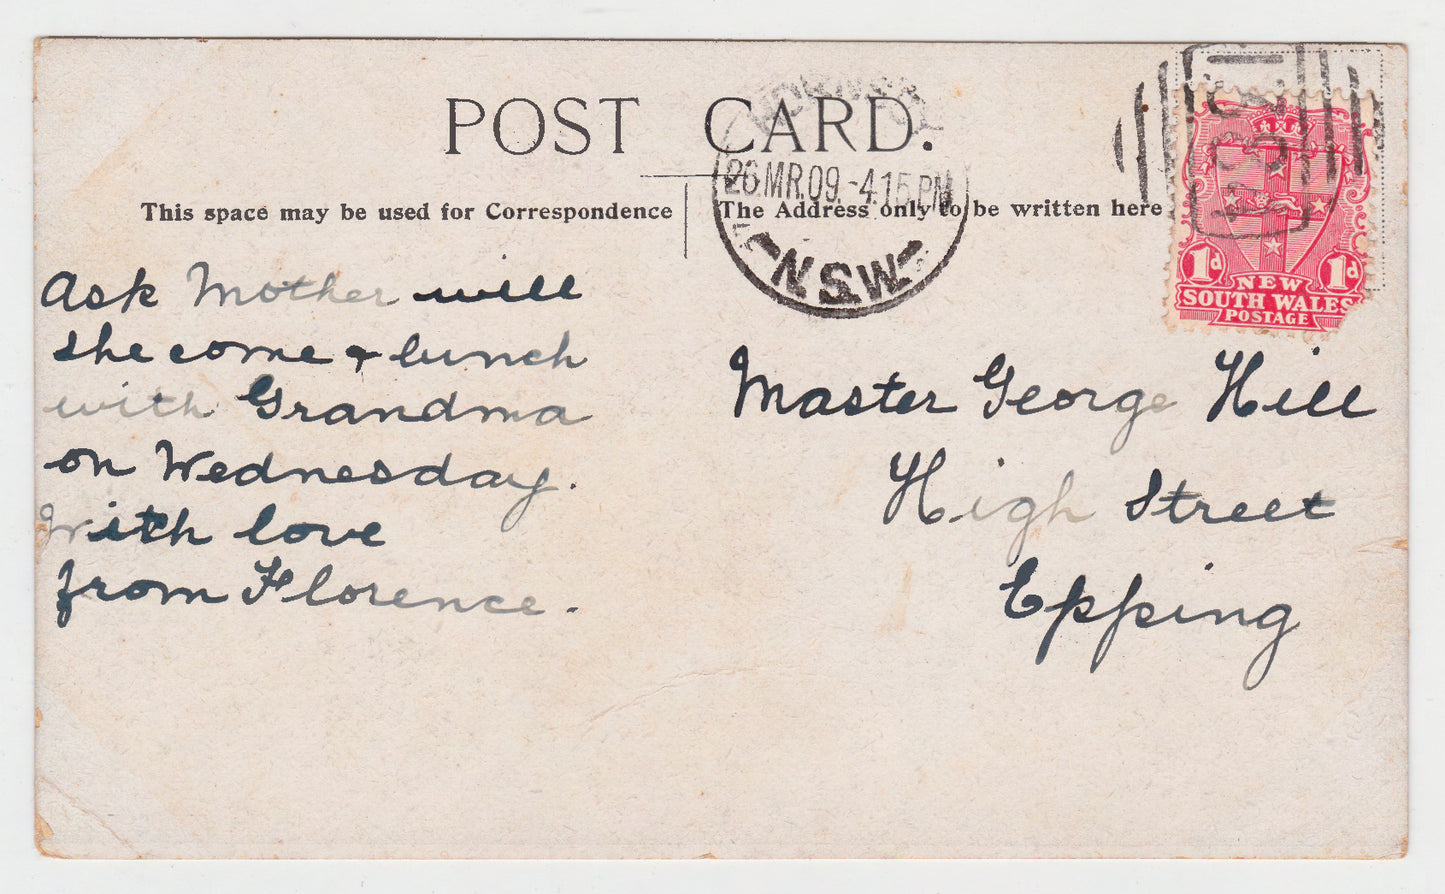 POST CARD.
This space may be used for Correspondence
The Address only to be written here
26 MR.09 - 4.15 PM
N.S.W
1d 1d
NEW
SOUTH WALES
POSTAGE
Ask Mother will
she come & lunch
with Grandma
on Wednesday.
With love
from Florence.
Master George Hill
High Street
Epping